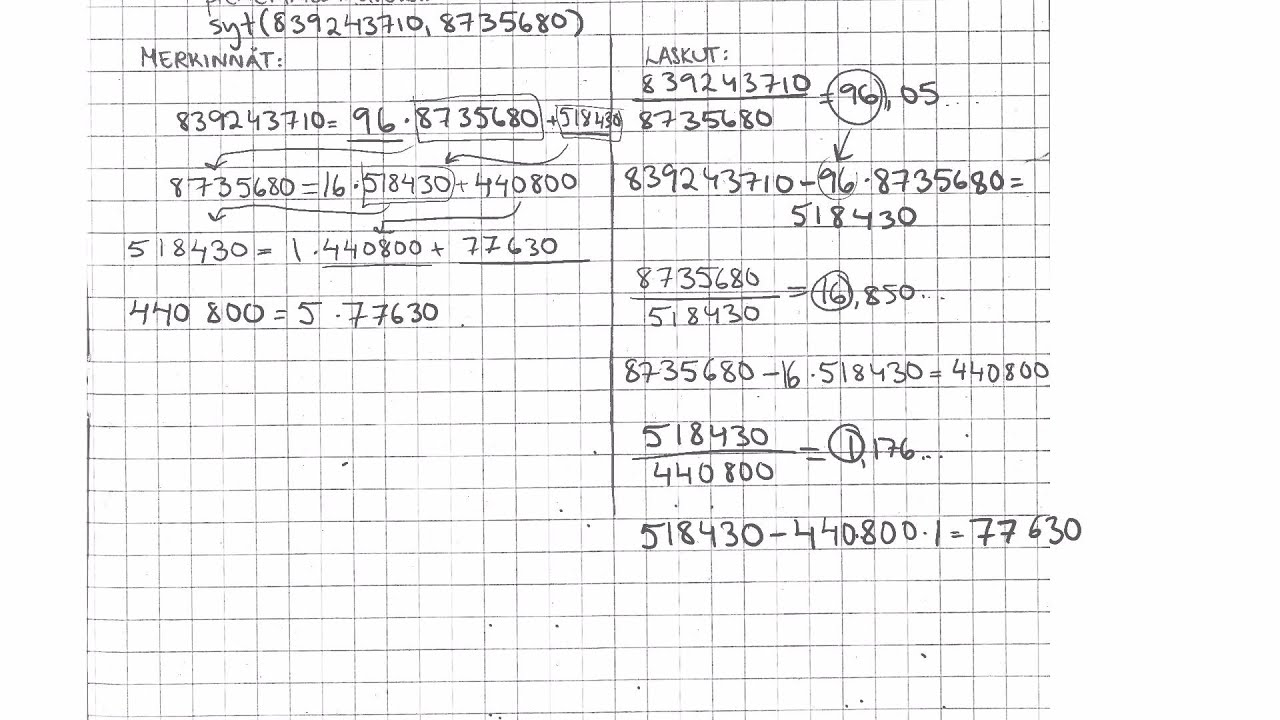 syt(839243710, 8735680)
MERKINNÄT:
839243710 = 96 · 8735680 + 518430
8735680 = 16 · 518430 + 440800
518430 = 1 · 440800 + 77630
440 800 = 5 · 77630
LASKUT:
839243710
8735680
= 96,05...
839243710 - 96 · 8735680 =
518430
8735680
518430
= 16,850...
8735680 - 16 · 518430 = 440800
518430
440800
= 1,176...
518430 - 440800 · 1 = 77630